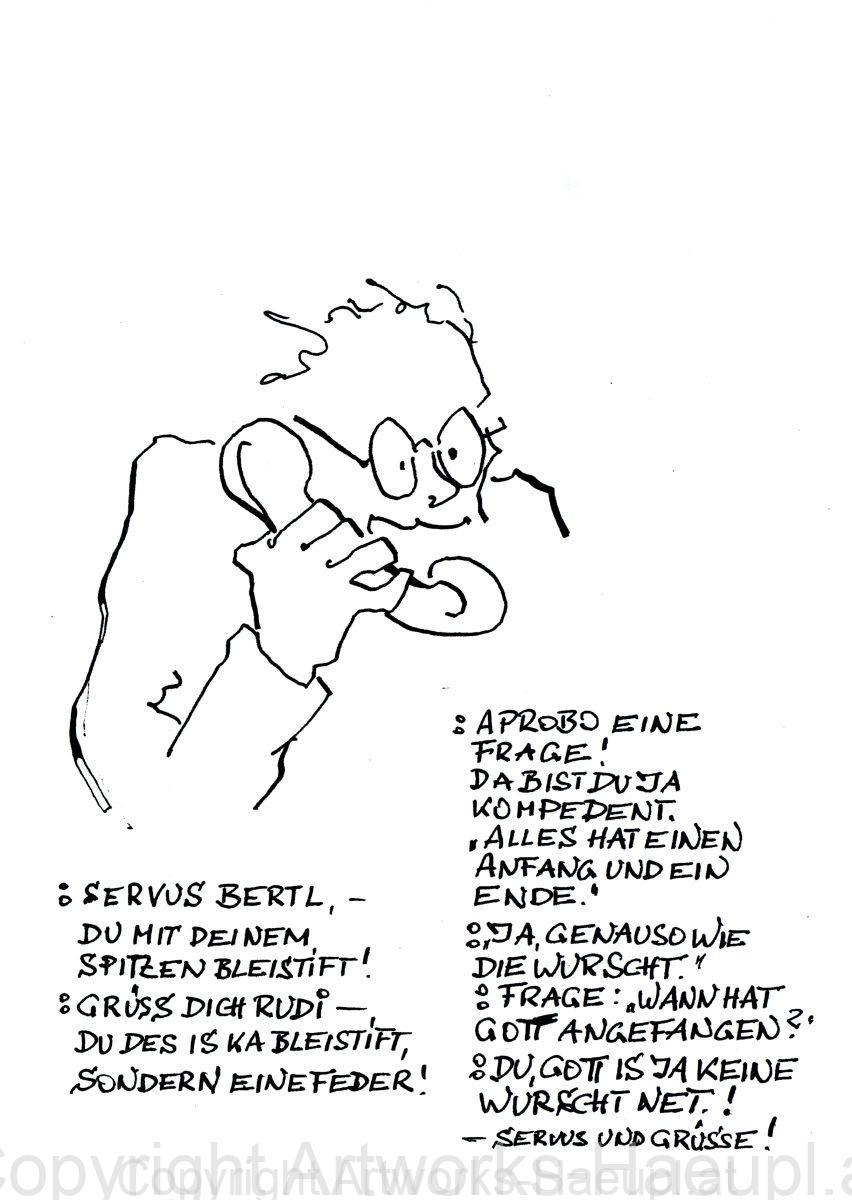 : SERVUS BERTL, –
DU MIT DEINEM
SPITZEN BLEISTIFT!
: GRÜSS DICH RUDI –,
DU DES IS KA BLEISTIFT,
SONDERN EINE FEDER!
: APROBO EINE
FRAGE!
DA BIST DU JA
KOMPEDENT.
„ALLES HAT EINEN
ANFANG UND EIN
ENDE.“
: „JA, GENAUSO WIE
DIE WURSCHT.“
: FRAGE: „WANN HAT
GOTT ANGEFANGEN?“
: DU, GOTT IS JA KEINE
WURSCHT NET.!
– SERVUS UND GRÜSSE!
Copyright Artworks-Haeupl.a
Copyright Artworks-Haeupl.at